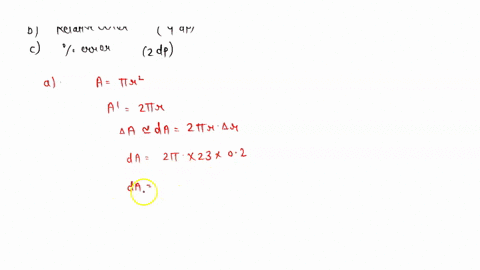 b) Relative error (4 dp)
c) % error (2 dp)
a) A = πr²
A' = 2πr
ΔA ≃ dA = 2πr · Δr
dA = 2π · × 23 × 0.2
dA =